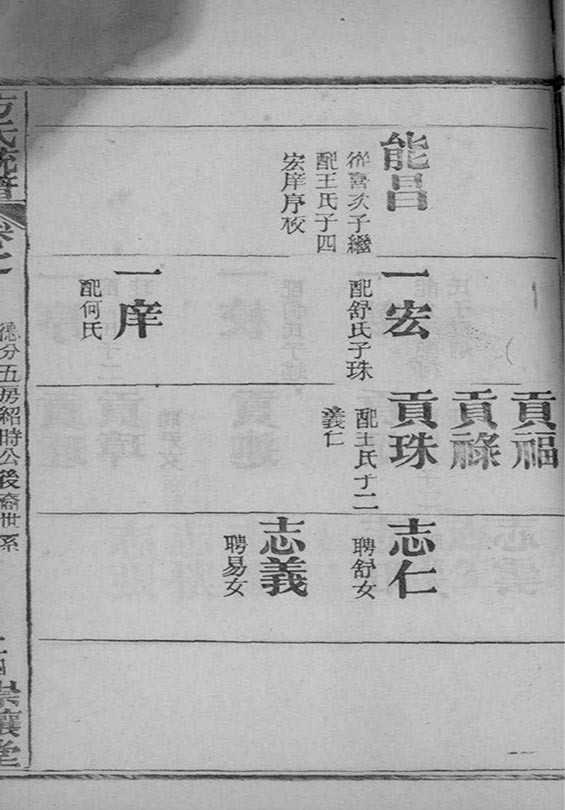 能昌
從喜次子繼
配王氏子四
宏庠序校
一宏
配舒氏子珠
一庠
配何氏
貢福
貢祿
貢珠
配王氏子二
義仁
志仁
聘舒女
志義
聘易女
方氏統譜
卷之
德分五房紹時公後裔世系
堂